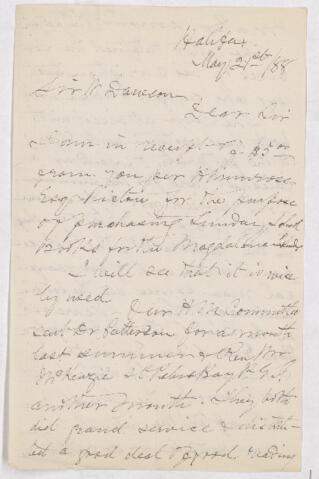 Halifax
May 21st/88
Sir W Dawson
Dear Sir
I am in receipt of $5.00
from you per H Primrose
Esq Pictou for the purpose
of purchasing Sunday School
Books for the Magdalene Islands
I will see that it is wise
ly used
Our H M Committee
sent Dr Patterson for a month
last summer & Rev Mr
McKenzie St Peters Bay P.E.I.
another month. They both
did grand service & distribut
ed a good deal of good reading